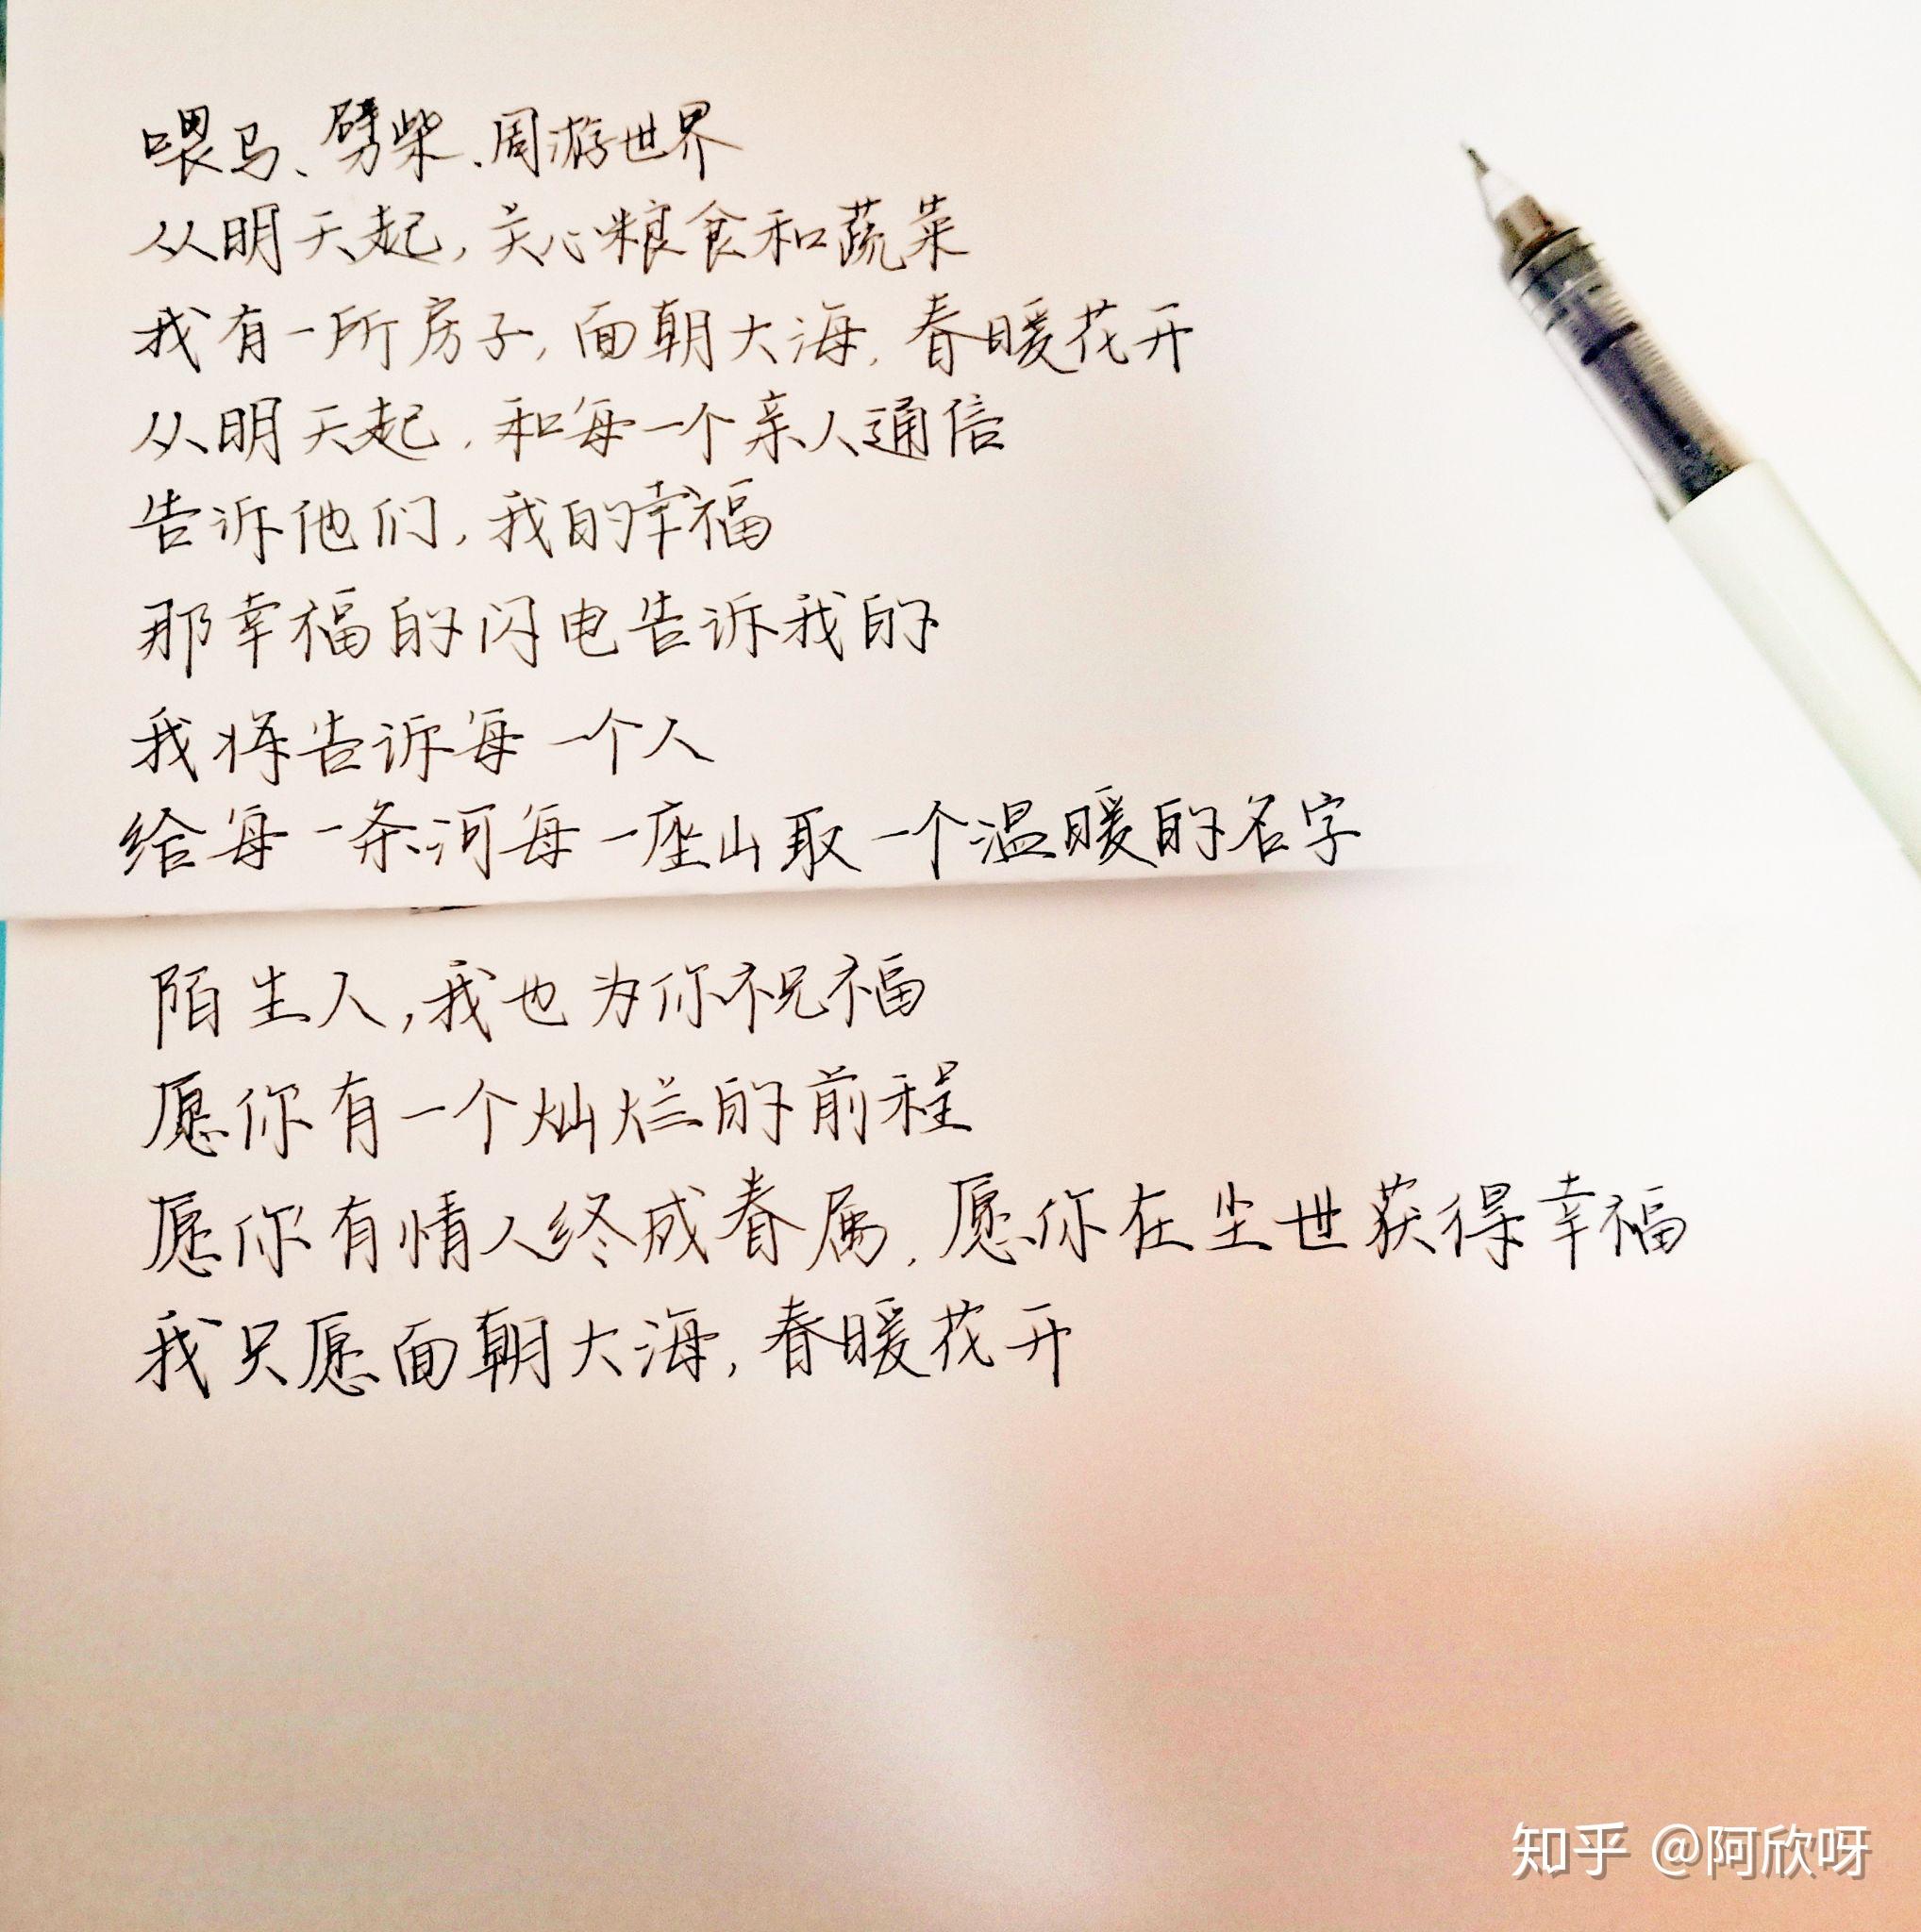 喂马、劈柴、周游世界
从明天起,关心粮食和蔬菜
我有一所房子,面朝大海,春暖花开
从明天起,和每一个亲人通信
告诉他们,我的幸福
那幸福的闪电告诉我的
我将告诉每一个人
给每一条河每一座山取一个温暖的名字
陌生人,我也为你祝福
愿你有一个灿烂的前程
愿你有情人终成眷属,愿你在尘世获得幸福
我只愿面朝大海,春暖花开
知乎 @阿欣呀